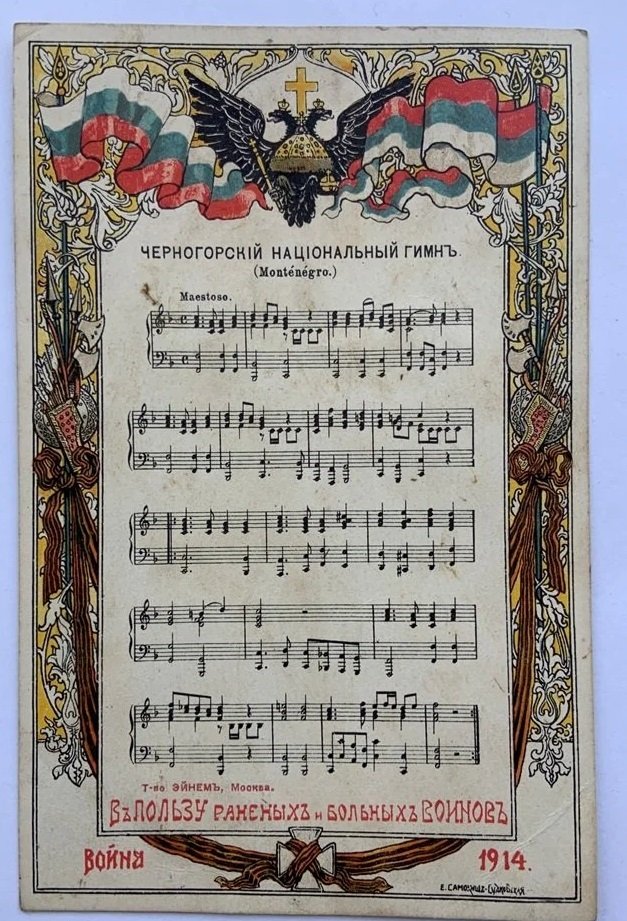 ЧЕРНОГОРСКІЙ НАЦІОНАЛЬНЫЙ ГИМНЪ.
(Monténégro.)
Maestoso.
Т-во ЭЙНЕМЪ, Москва.
ВЪ ПОЛЬЗУ РАНЕНЫХЪ И БОЛЬНЫХЪ ВОИНОВЪ
ВОЙНА 1914.
Е. САМОКИШЪ-СУДКОВСКАЯ